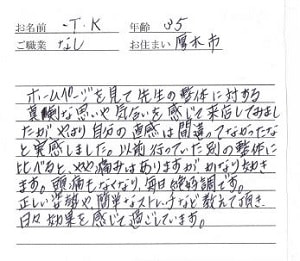 お名前 -T.K 年齢 35
ご職業 なし お住まい 厚木市
ホームページを見て先生の整体に対する
真剣な思いや気合いを感じて来店してみまし
たが、やはり自分の直感は間違ってなかったな
と実感しました。以前行っていた別の整体に
比べると、やや痛みはありますがかなり効き
ます。頭痛もなくなり、毎日絶好調です。
正しい姿勢や簡単なストレッチなど教えて頂き、
日々効果を感じて過ごしています。